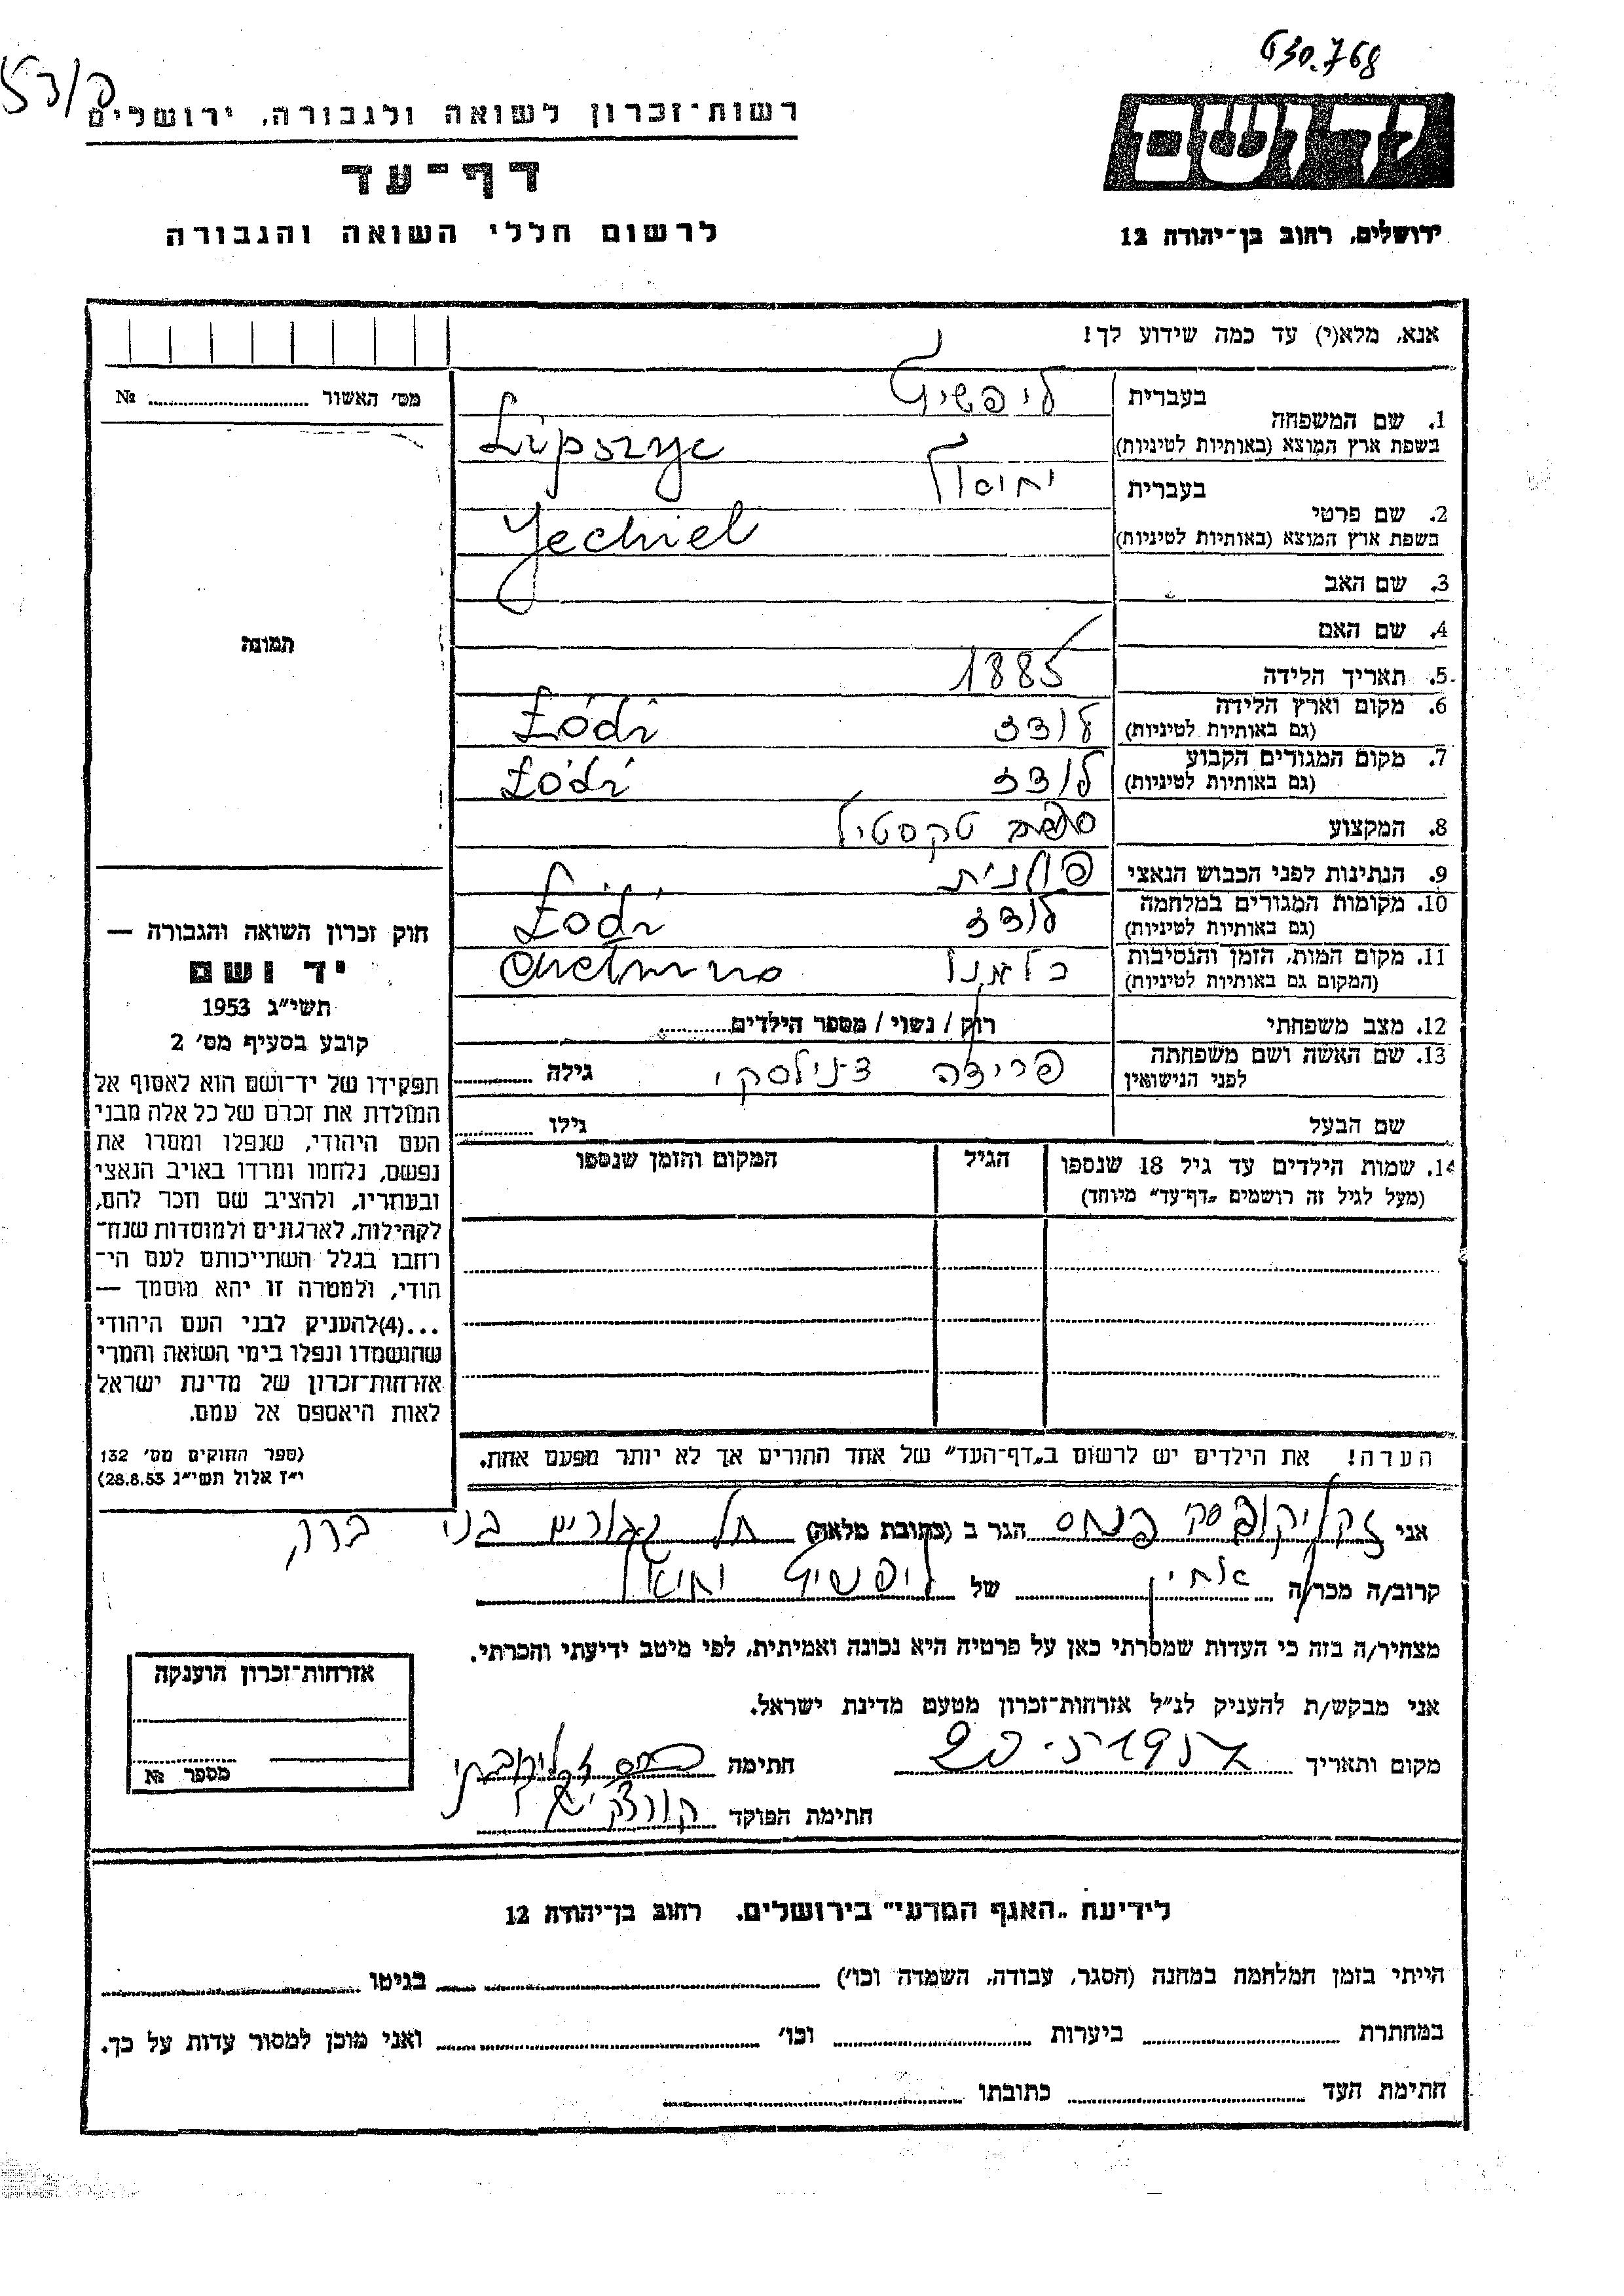 630.768
רשות־זכרון לשואה ולגבורה, ירושלים
דף־עד
לרשום חללי השואה והגבורה
יד ושם
ירושלים, רחוב בן־יהודה 12
אנא, מלא(י) עד כמה שידוע לך!
מס׳ האשור № 
בעברית ליפשיץ
1. שם המשפחה
בשפת ארץ המוצא (באותיות לטיניות) Lipszyc
בעברית יחיאל
2. שם פרטי
בשפת ארץ המוצא (באותיות לטיניות) Jechiel
3. שם האב
4. שם האם
5. תאריך הלידה 1885
6. מקום וארץ הלידה לודז Łódź
(גם באותיות לטיניות)
7. מקום המגורים הקבוע לודז Łódź
(גם באותיות לטיניות)
8. המקצוע טקסטיל
9. הנתינות לפני הכבוש הנאצי פולנית
10. מקומות המגורים במלחמה לודז Łódź
(גם באותיות לטיניות)
11. מקום המות, הזמן והנסיבות Chełmno
(המקום גם באותיות לטיניות)
12. מצב משפחתי רוק / נשוי / מספר הילדים
13. שם האשה ושם משפחתה
לפני הנישואין דנילסקי גילה
שם הבעל גילו
14. שמות הילדים עד גיל 18 שנספו הגיל המקום והזמן שנספו
(מעל לגיל זה רושמים „דף־עד״ מיוחד)
הערה! את הילדים יש לרשום ב„דף־העד״ של אחד ההורים אך לא יותר מפעם אחת.
תמונה
חוק זכרון השואה והגבורה —
יד ושם
תשי״ג 1953
קובע בסעיף מס׳ 2
תפקידו של יד־ושם הוא לאסוף אל
המולדת את זכרם של כל אלה מבני
העם היהודי, שנפלו ומסרו את
נפשם, נלחמו ומרדו באויב הנאצי
ובעוזריו, ולהציב שם וזכר להם,
לקהילות, לארגונים ולמוסדות שנח־
רבו בגלל השתייכותם לעם הי־
הודי, ולמטרה זו יהא מוסמך —
...(4)להעניק לבני העם היהודי
שהושמדו ונפלו בימי השואה והמרי
אזרחות־זכרון של מדינת ישראל
לאות היאספם אל עמם.
(ספר החוקים מס׳ 132
י״ז אלול תשי״ג 28.8.53)
אני פנחס הגר ב (כתובת מלאה) תל גבורים בני ברק
קרוב/ה מכר/ה אחין של ליפשיץ יחיאל
מצהיר/ה בזה כי העדות שמסרתי כאן על פרטיה היא נכונה ואמיתית, לפי מיטב ידיעתי והכרתי.
אני מבקש/ת להעניק לנ״ל אזרחות־זכרון מטעם מדינת ישראל.
מקום ותאריך חתימה
חתימת הפוקד
אזרחות־זכרון הוענקה
מספר №
לידיעת „האגף המדעי״ בירושלים, רחוב בן־יהודה 12
הייתי בזמן המלחמה במחנה (הסגר, עבודה, השמדה וכו׳) בגיטו
במחתרת ביערות וכו׳ ואני מוכן למסור עדות על כך.
חתימת העד כתובתו